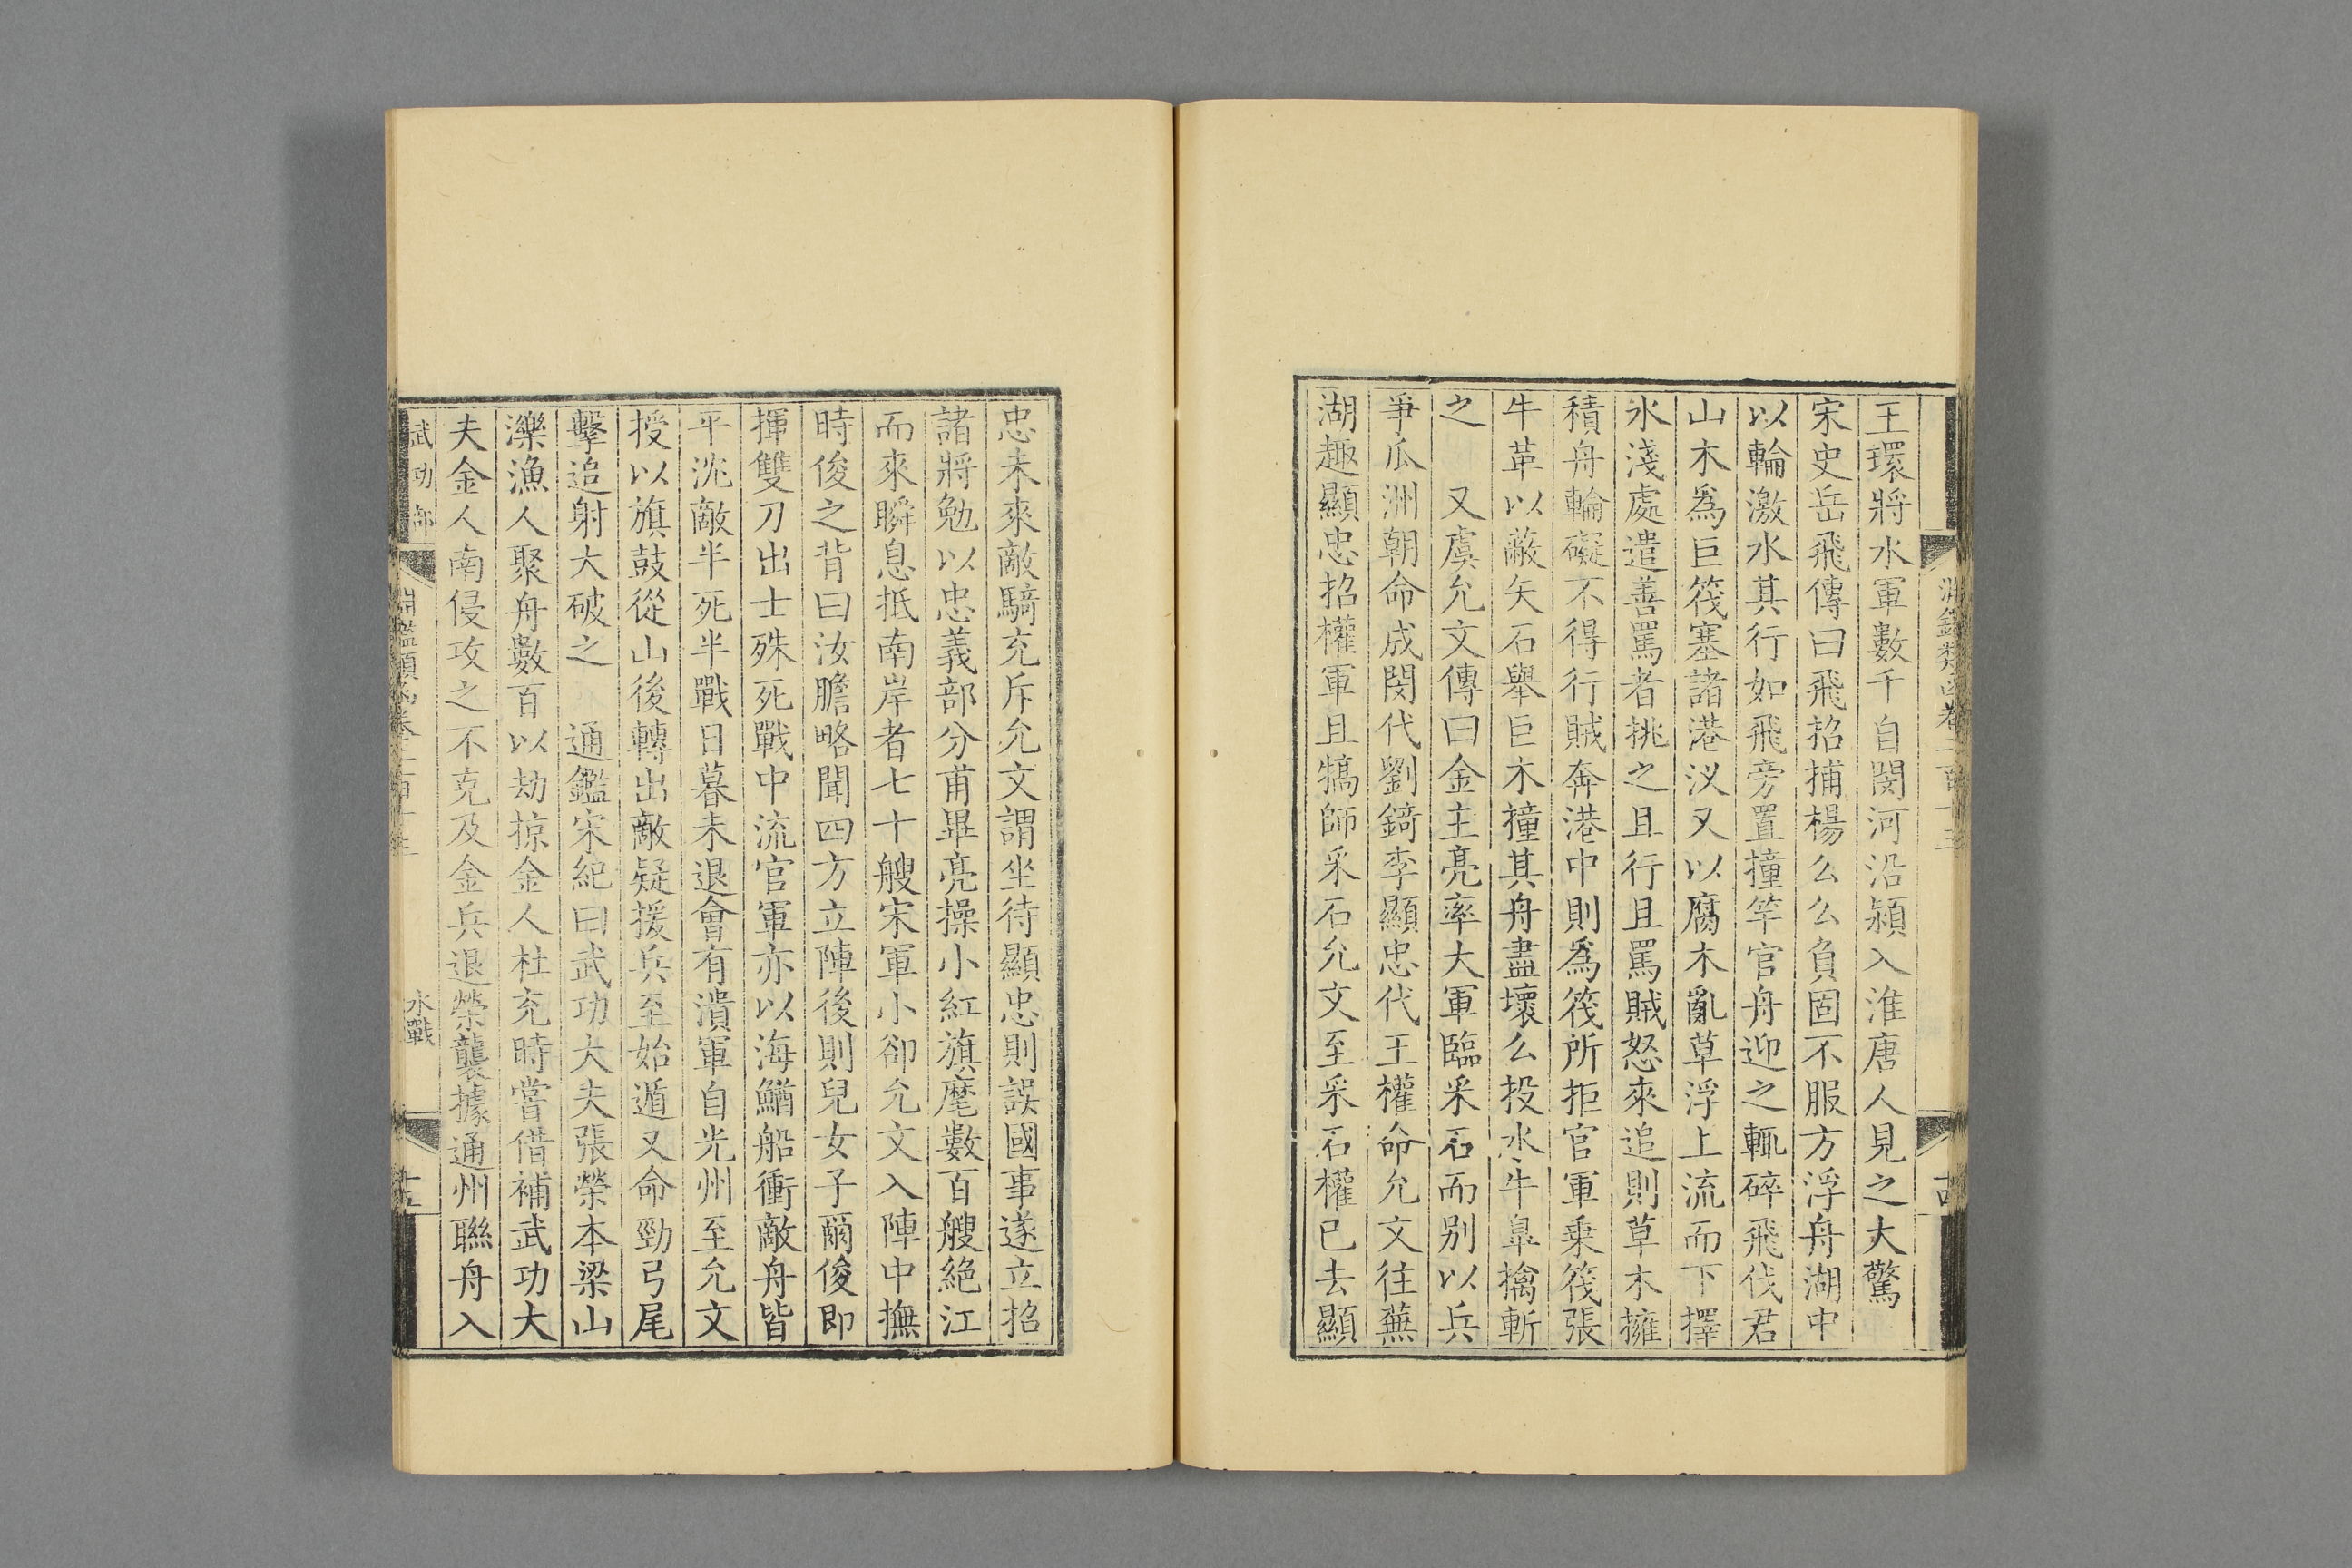 王環將水軍數千自閔河沿潁入淮唐人見之大驚
宋史岳飛傳曰飛招捕楊么么負固不服方浮舟湖中
以輪激水其行如飛旁置撞竿官舟迎之輒碎飛伐君
山木爲巨筏塞諸港汊又以腐木亂草浮上流而下擇
水淺處遣善罵者挑之且行且罵賊怒來追則草木擁
積舟輪礙不得行賊奔港中則爲筏所拒官軍乗筏張
牛革以蔽矢石舉巨木撞其舟盡壞么投水牛臯擒斬
之 又虞允文傳曰金主亮率大軍臨采石而别以兵
爭瓜洲朝命成閔代劉錡李顯忠代王權命允文往蕪
湖趣顯忠招權軍且犒師采石允文至采石權已去顯
忠未來敵騎充斥允文謂坐待顯忠則誤國事遂立招
諸將勉以忠義部分甫畢亮操小紅旗麾數百艘絶江
而來瞬息抵南岸者七十艘宋軍小卻允文入陣中撫
時俊之背曰汝膽略聞四方立陣後則兒女子爾俊即
揮雙刀出士殊死戰中流官軍亦以海鰌船衝敵舟皆
平沈敵半死半戰日暮未退會有潰軍自光州至允文
授以旗鼓從山後轉出敵疑援兵至始遁又命勁弓尾
擊追射大破之 通鑑宋紀曰武功大夫張榮本梁山
濼漁人聚舟數百以劫掠金人杜充時嘗借補武功大
夫金人南侵攻之不克及金兵退榮襲據通州聯舟入
武功部 淵鑑類函卷二百十三 水戰 十五